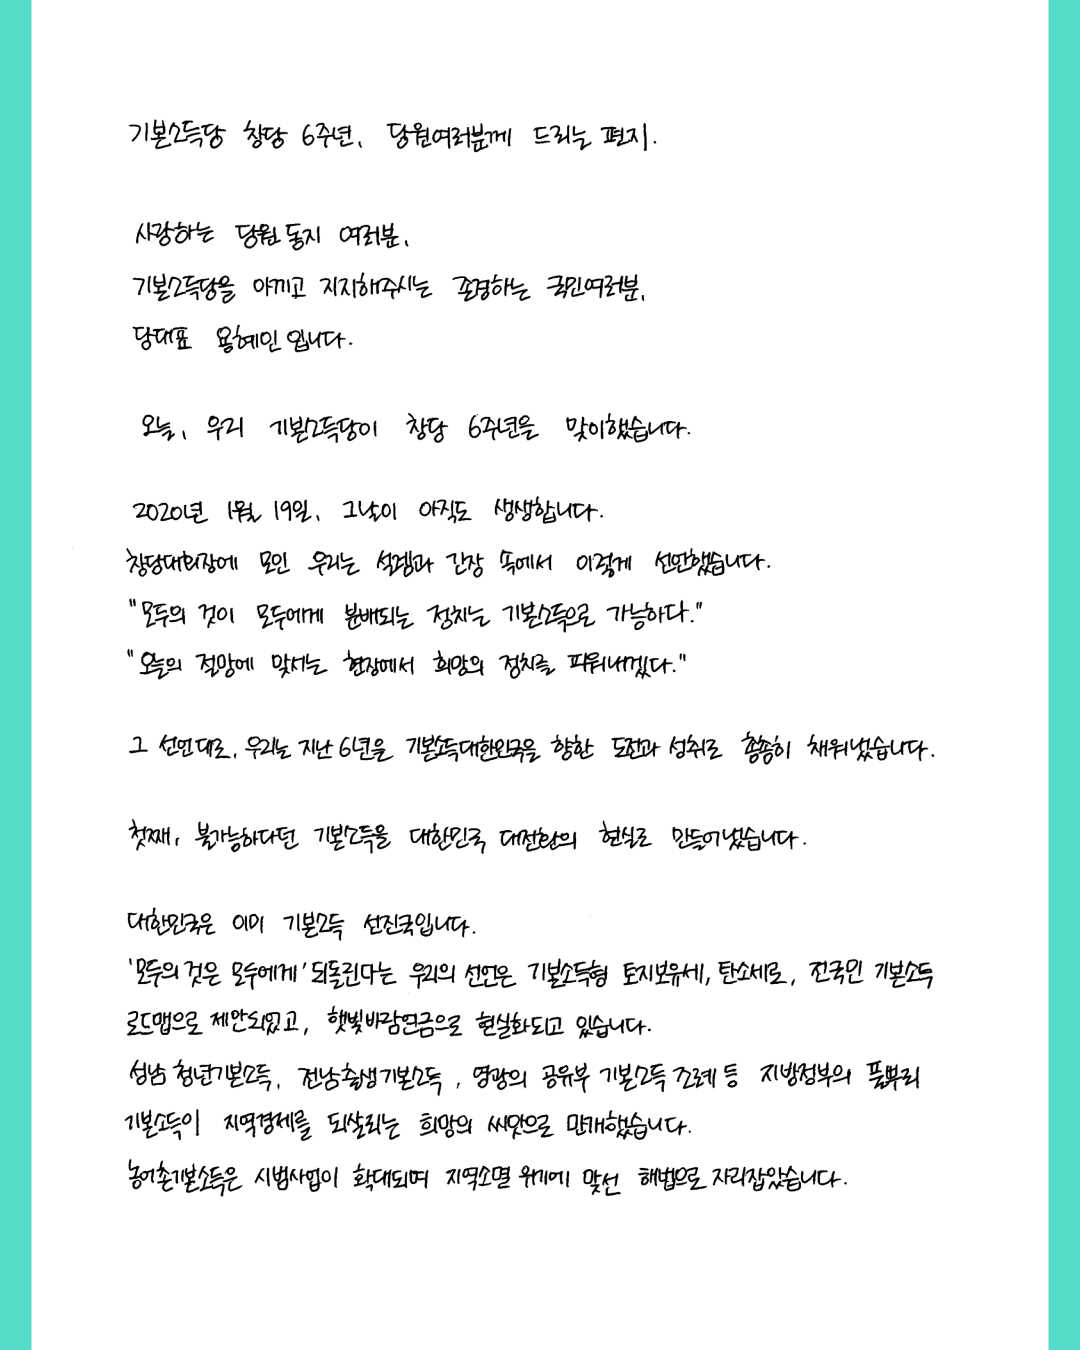 기본소득당 창당 6주년, 당원여러분께 드리는 편지.
사랑하는 당원 동지 여러분,
기본소득당을 아끼고 지지해주시는 존경하는 국민여러분,
당대표 용혜인입니다.
오늘, 우리 기본소득당이 창당 6주년을 맞이했습니다.
2020년 1월 19일, 그날이 아직도 생생합니다.
창당대회장에 모인 우리는 설렘과 긴장 속에서 이렇게 선언했습니다.
"모두의 것이 모두에게 분배되는 정치는 기본소득으로 가능하다."
"오늘의 절망에 맞서는 현장에서 희망의 정치를 피워내겠다."
그 선언대로, 우리는 지난 6년을 기본소득대한민국을 향한 도전과 성취로 촘촘히 채워냈습니다.
첫째, 불가능하다던 기본소득을 대한민국 대전환의 현실로 만들어냈습니다.
대한민국은 이미 기본소득 선진국입니다.
'모두의 것은 모두에게' 되돌린다는 우리의 선언은 기본소득형 토지보유세, 탄소세로, 전국민 기본소득
로드맵으로 제안되었고, 햇빛바람연금으로 현실화되고 있습니다.
성남 청년기본소득, 전남출생기본소득, 영광의 공유부 기본소득 조례 등 지방정부의 풀뿌리
기본소득이 지역경제를 되살리는 희망의 씨앗으로 만개했습니다.
농어촌기본소득은 시범사업이 확대되며 지역소멸 위기에 맞선 해법으로 자리잡았습니다.